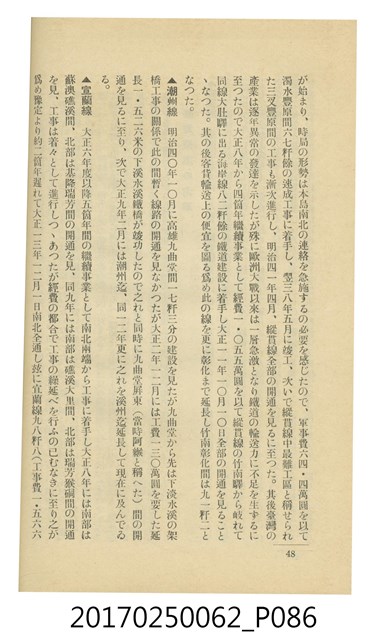 が始まり、時局の形勢は本島南北の連絡を急施するの必要を感じたので、軍事費六四・四萬圓を以て
濁水豐原間六七粁餘の速成工事に着手し、翌三八年五月に竣工、次いで縱貫線中最難工區と稱せられ
た三叉豐原間の工事も漸次進行し、明治四一年四月、縱貫線全部の開通を見るに至つた。其後臺灣の
產業は逐年異常の發達を示したが殊に歐洲大戰以來は一層急激となり鐵道の輸送力に不足を生ずるに
至つたので大正八年から四箇年繼續事業として經費一・〇五五萬圓を以て縱貫線の竹南驛から岐れて
同線大肚驛に出る海岸線八二粁餘の鐵道建設に着手し大正一一年一〇月一〇日全部の開通を見ること
ゝなつた。其の後客貨輸送上の便宜を圖る爲め此の線を更に彰化まで延長し竹南彰化間は九一粁二と
なつた。
▲潮州線　明治四〇年一〇月に高雄九曲堂間一七粁三分の建設を見たが九曲堂から先は下淡水溪の架
橋工事の關係で此の間暫く線路の開通を見なかつたが大正二年一二月には工費一三〇萬圓を要した延
長一・五二六米の下淡水溪鐵橋が竣功したので之れと同時に九曲堂屏東（當時阿緱と稱へた）間の開
通を見るに至り、次で大正九年二月には潮州迄、同一二年更に之れを溪州迄延長して現在に及んでゐ
る。
▲宜蘭線　大正六年度以降五箇年間の繼續事業として南北兩端から工事に着手し大正八年には南部は
蘇澳礁溪間、北部は基隆瑞芳間の開通を見、同九年には南部は礁溪大里間、北部は瑞芳猴硐間の開通
を見、工事は着々として進行しつゝあつたが經費の都合で工事の繰延べを行ふの已むなきに至り之が
爲め豫定より約二箇年遲れて大正一三年一二月一日南北全通し玆に宜蘭線九八粁八（工事費一・五六六
48
20170250062_P086